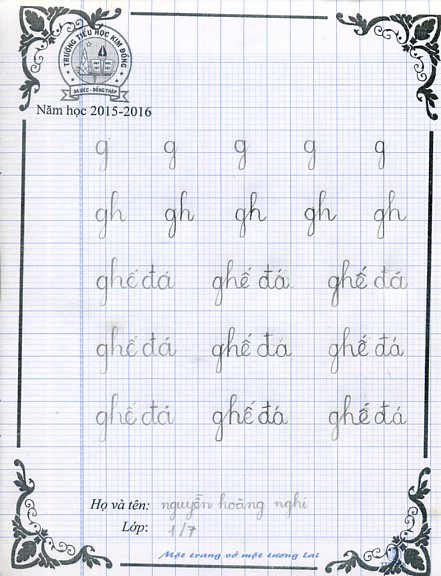 TRƯỜNG TIỂU HỌC KIM ĐỒNG
SA ĐÉC - ĐỒNG THÁP
Năm học 2015-2016
g g g g g
gh gh gh gh gh
ghế đá ghế đá ghế đá
ghế đá ghế đá ghế đá
ghế đá ghế đá ghế đá
Họ và tên: nguyễn hoàng nghi
Lớp: 1/7
Một trang vở một tương lai